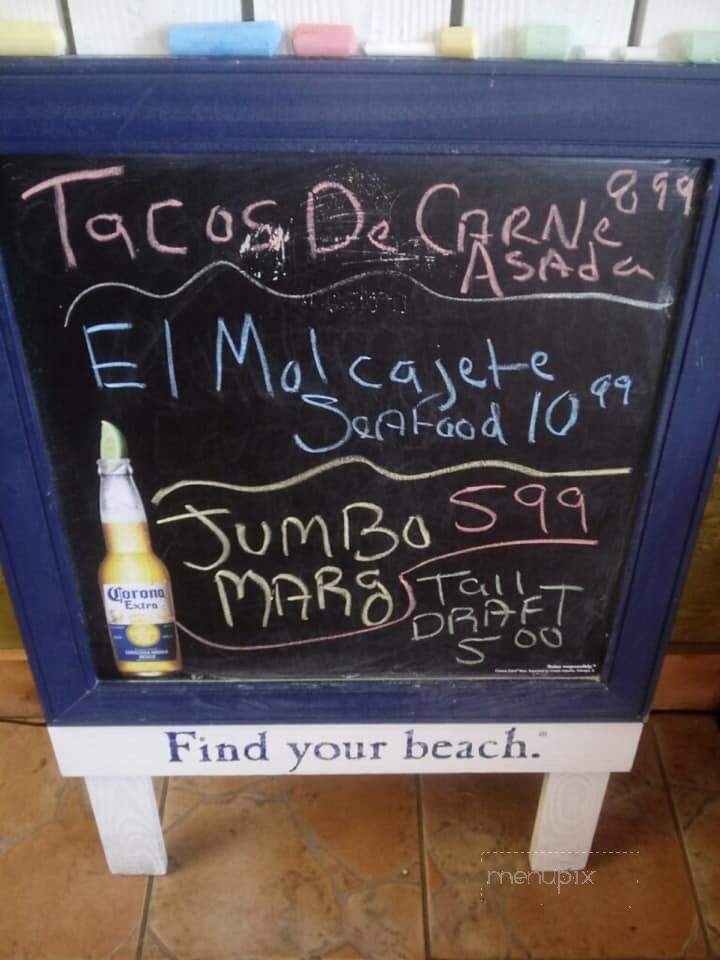 Tacos De CARNe 8 99
ASAda
El Molcajete
SeAFood 10 99
JUMBo 5 99
MARg
Tall
DRAFT
5 00
Corona
Extra
Find your beach.
menupix